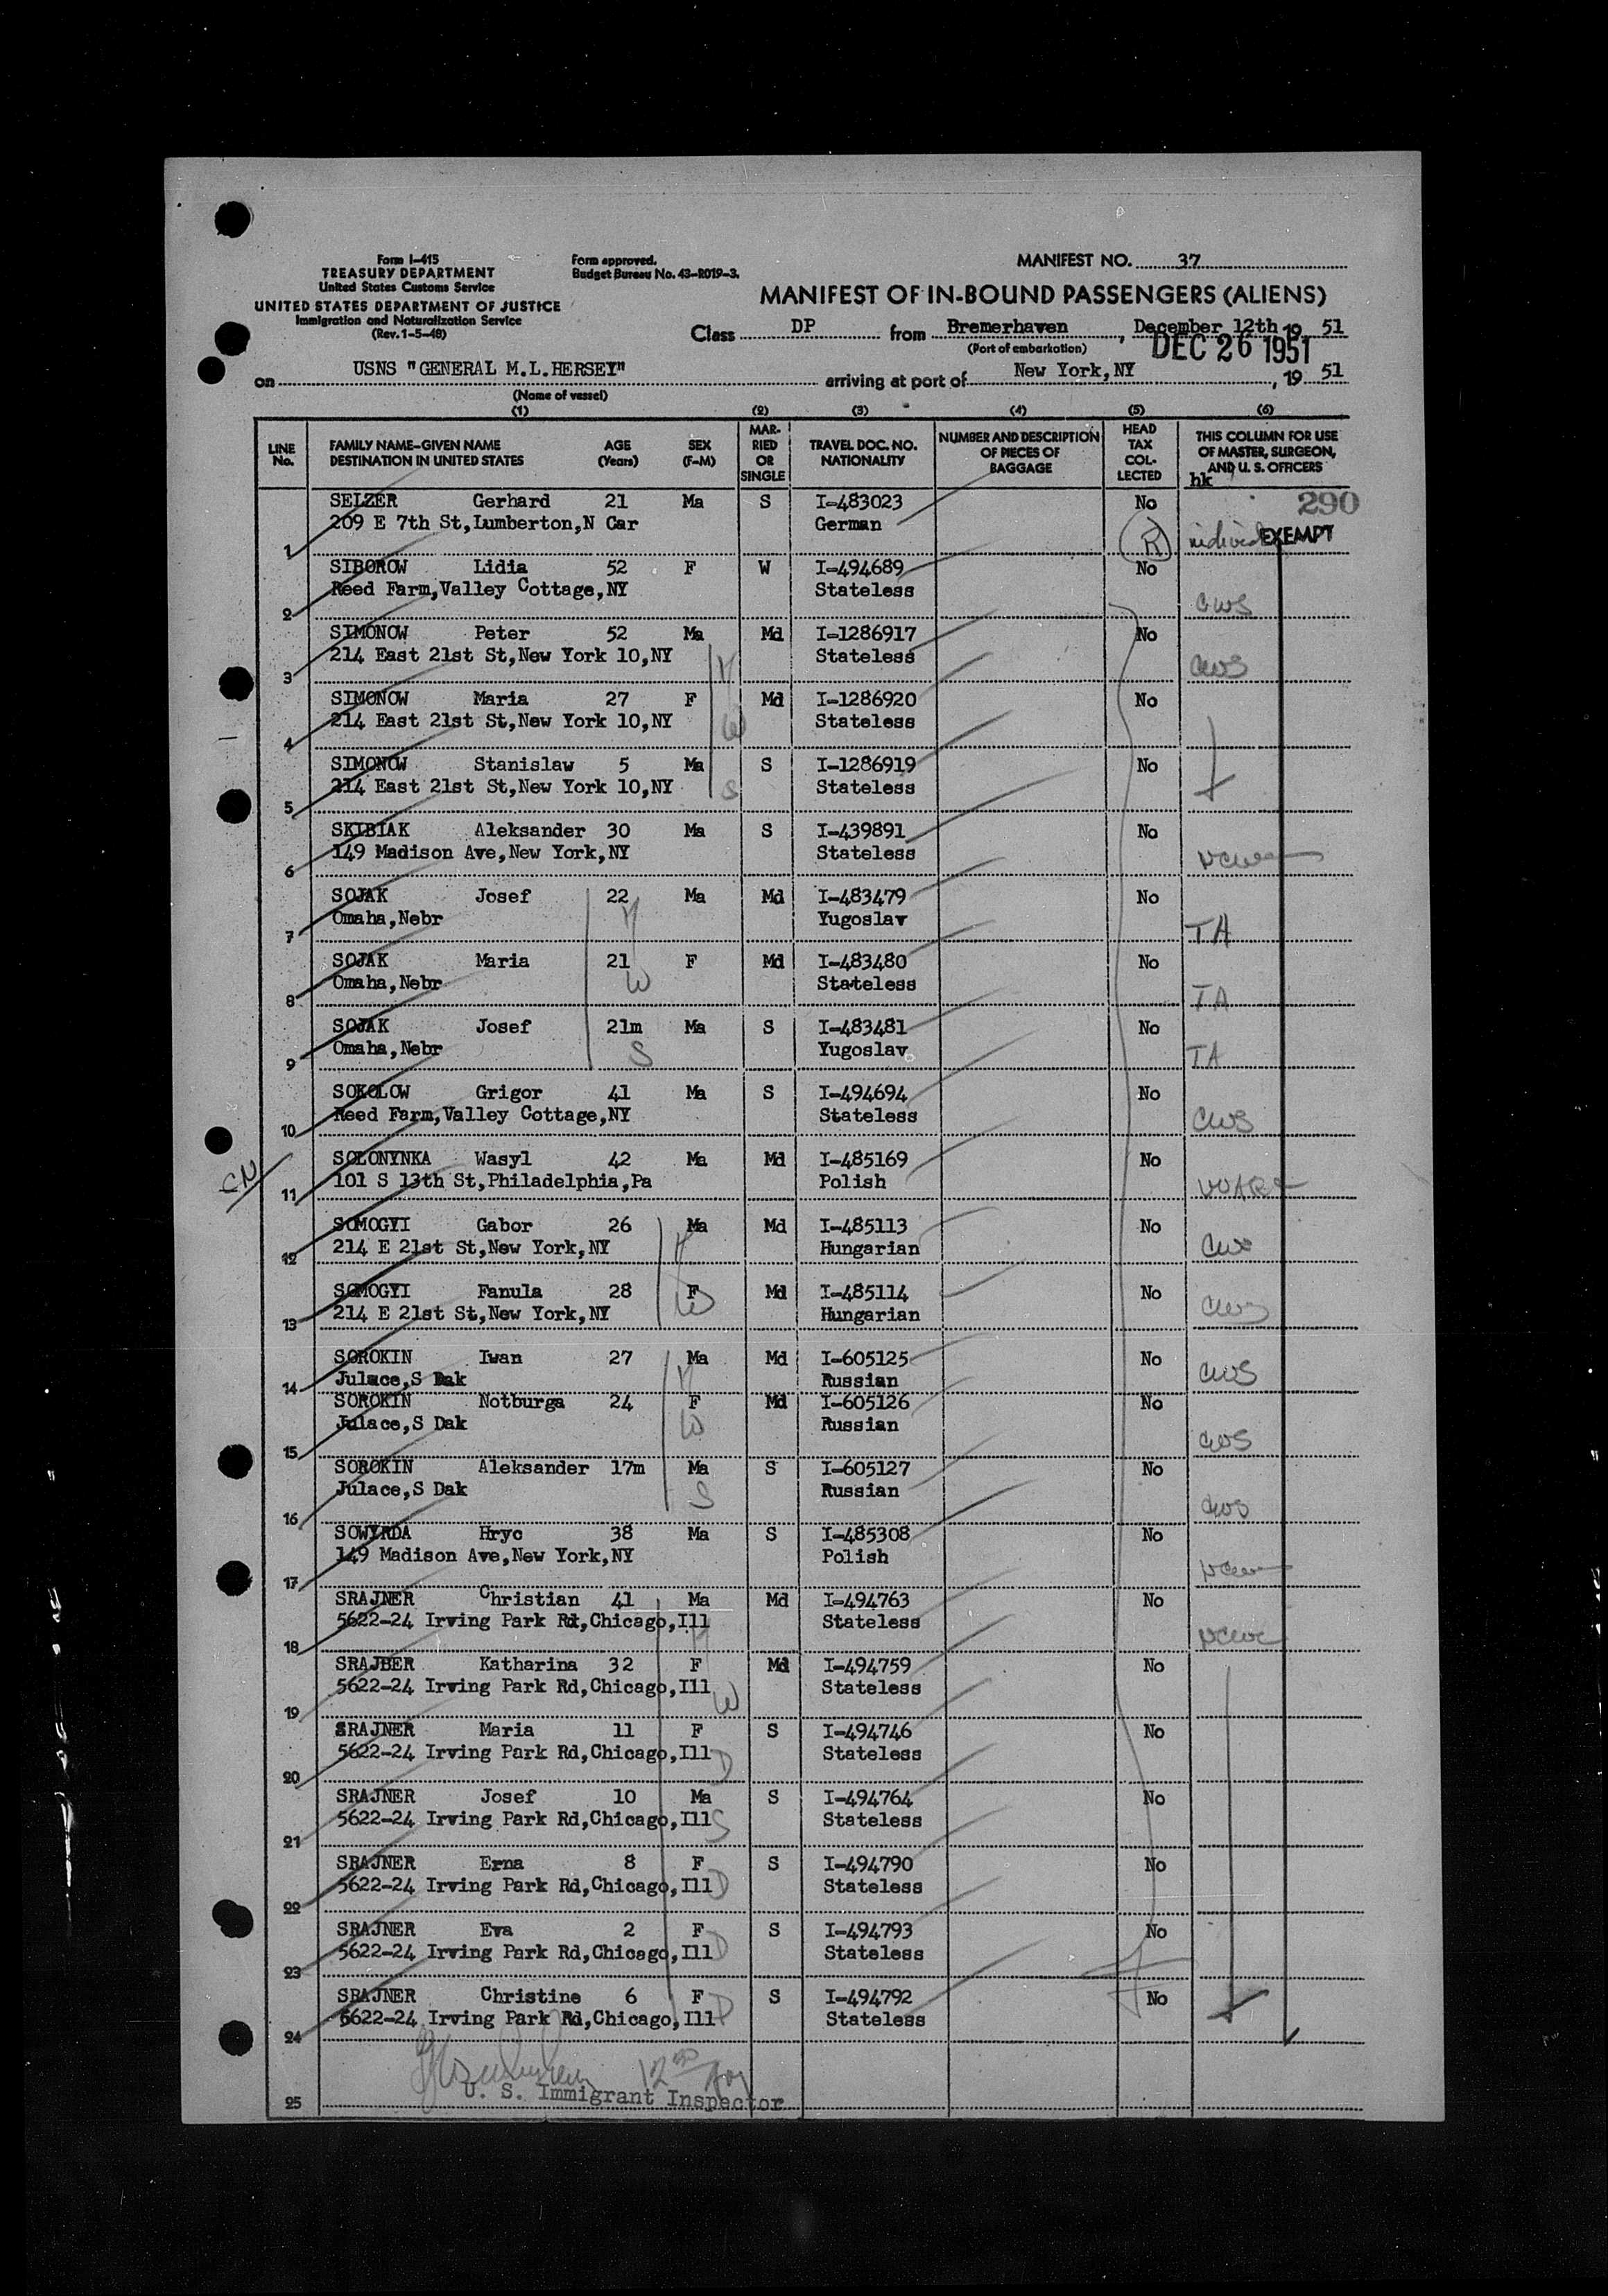 Form I-415
TREASURY DEPARTMENT
United States Customs Service
UNITED STATES DEPARTMENT OF JUSTICE
Immigration and Naturalization Service
(Rev. 1-5-48)
Form approved.
Budget Bureau No. 43-R019-3.
MANIFEST NO. 37
MANIFEST OF IN-BOUND PASSENGERS (ALIENS)
Class DP from Bremerhaven, December 12th 19 51
(Port of embarkation)
DEC 26 1951
on USNS "GENERAL M.L.HERSEY" arriving at port of New York,NY, 19 51
(Name of vessel)
(1) (2) (3) (4) (5) (6)
LINE No.
FAMILY NAME-GIVEN NAME AGE SEX
DESTINATION IN UNITED STATES (Years) (F-M)
MARRIED OR SINGLE
TRAVEL DOC. NO. NATIONALITY
NUMBER AND DESCRIPTION OF PIECES OF BAGGAGE
HEAD TAX COLLECTED
THIS COLUMN FOR USE OF MASTER, SURGEON, AND U. S. OFFICERS
hk
290
SELZER Gerhard 21 Ma S I-483023 No
209 E 7th St,Lumberton,N Car German
1 R EXEMPT
SIBOROW Lidia 52 F W I-494689 No
Reed Farm,Valley Cottage,NY Stateless
2 CWS
SIMONOW Peter 52 Ma Md I-1286917 No
214 East 21st St,New York 10,NY Stateless
3 H CWS
SIMONOW Maria 27 F Md I-1286920 No
214 East 21st St,New York 10,NY Stateless
4 W
SIMONOW Stanislaw 5 Ma S I-1286919 No
214 East 21st St,New York 10,NY Stateless
5 S
SKIBIAK Aleksander 30 Ma S I-439891 No
149 Madison Ave,New York,NY Stateless
6 NCWC
SOJAK Josef 22 Ma Md I-483479 No
Omaha,Nebr Yugoslav
7 H TA
SOJAK Maria 21 F Md I-483480 No
Omaha,Nebr Stateless
8 W TA
SOJAK Josef 21m Ma S I-483481 No
Omaha,Nebr Yugoslav
9 S TA
SOKOLOW Grigor 41 Ma S I-494694 No
Reed Farm,Valley Cottage,NY Stateless
10 CWS
SOLONYNKA Wasyl 42 Ma Md I-485169 No
101 S 13th St,Philadelphia,Pa Polish
CN 11
SOMOGYI Gabor 26 Ma Md I-485113 No
214 E 21st St,New York,NY Hungarian
12 H CWS
SOMOGYI Fanula 28 F Md I-485114 No
214 E 21st St,New York,NY Hungarian
13 W CWS
SOROKIN Iwan 27 Ma Md I-605125 No
Julace,S Dak Russian
14 H CWS
SOROKIN Notburga 24 F Md I-605126 No
Julace,S Dak Russian
15 W CWS
SOROKIN Aleksander 17m Ma S I-605127 No
Julace,S Dak Russian
16 S CWS
SOWYRDA Hryc 38 Ma S I-485308 No
149 Madison Ave,New York,NY Polish
17 NCWC
SRAJNER Christian 41 Ma Md I-494763 No
5622-24 Irving Park Rd,Chicago,Ill Stateless
18 H NCWC
SRAJBER Katharina 32 F Md I-494759 No
5622-24 Irving Park Rd,Chicago,Ill Stateless
19 W
SRAJNER Maria 11 F S I-494746 No
5622-24 Irving Park Rd,Chicago,Ill Stateless
20 D
SRAJNER Josef 10 Ma S I-494764 No
5622-24 Irving Park Rd,Chicago,Ill Stateless
21 S
SRAJNER Erna 8 F S I-494790 No
5622-24 Irving Park Rd,Chicago,Ill Stateless
22 D
SRAJNER Eva 2 F S I-494793 No
5622-24 Irving Park Rd,Chicago,Ill Stateless
23 D
SRAJNER Christine 6 F S I-494792 No
5622-24 Irving Park Rd,Chicago,Ill Stateless
24 D
U. S. Immigrant Inspector
25